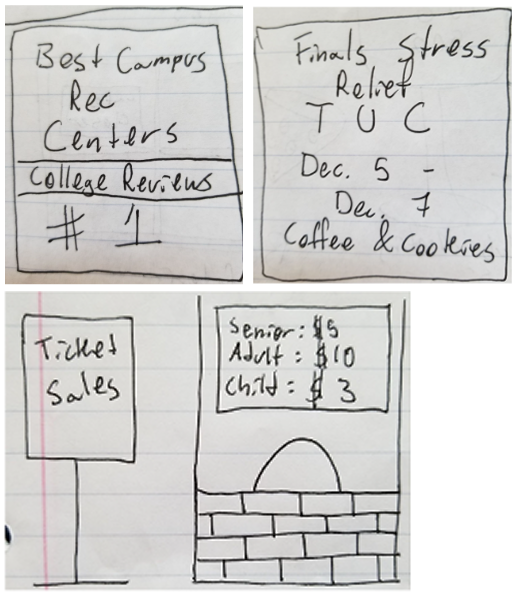 Best Campus
Rec
Centers
College Reviews
# 1
Finals Stress
Relief
T U C
Dec. 5 -
Dec. 7
Coffee & Cookies
Ticket
Sales
Senior: $5
Adult: $10
Child: $3